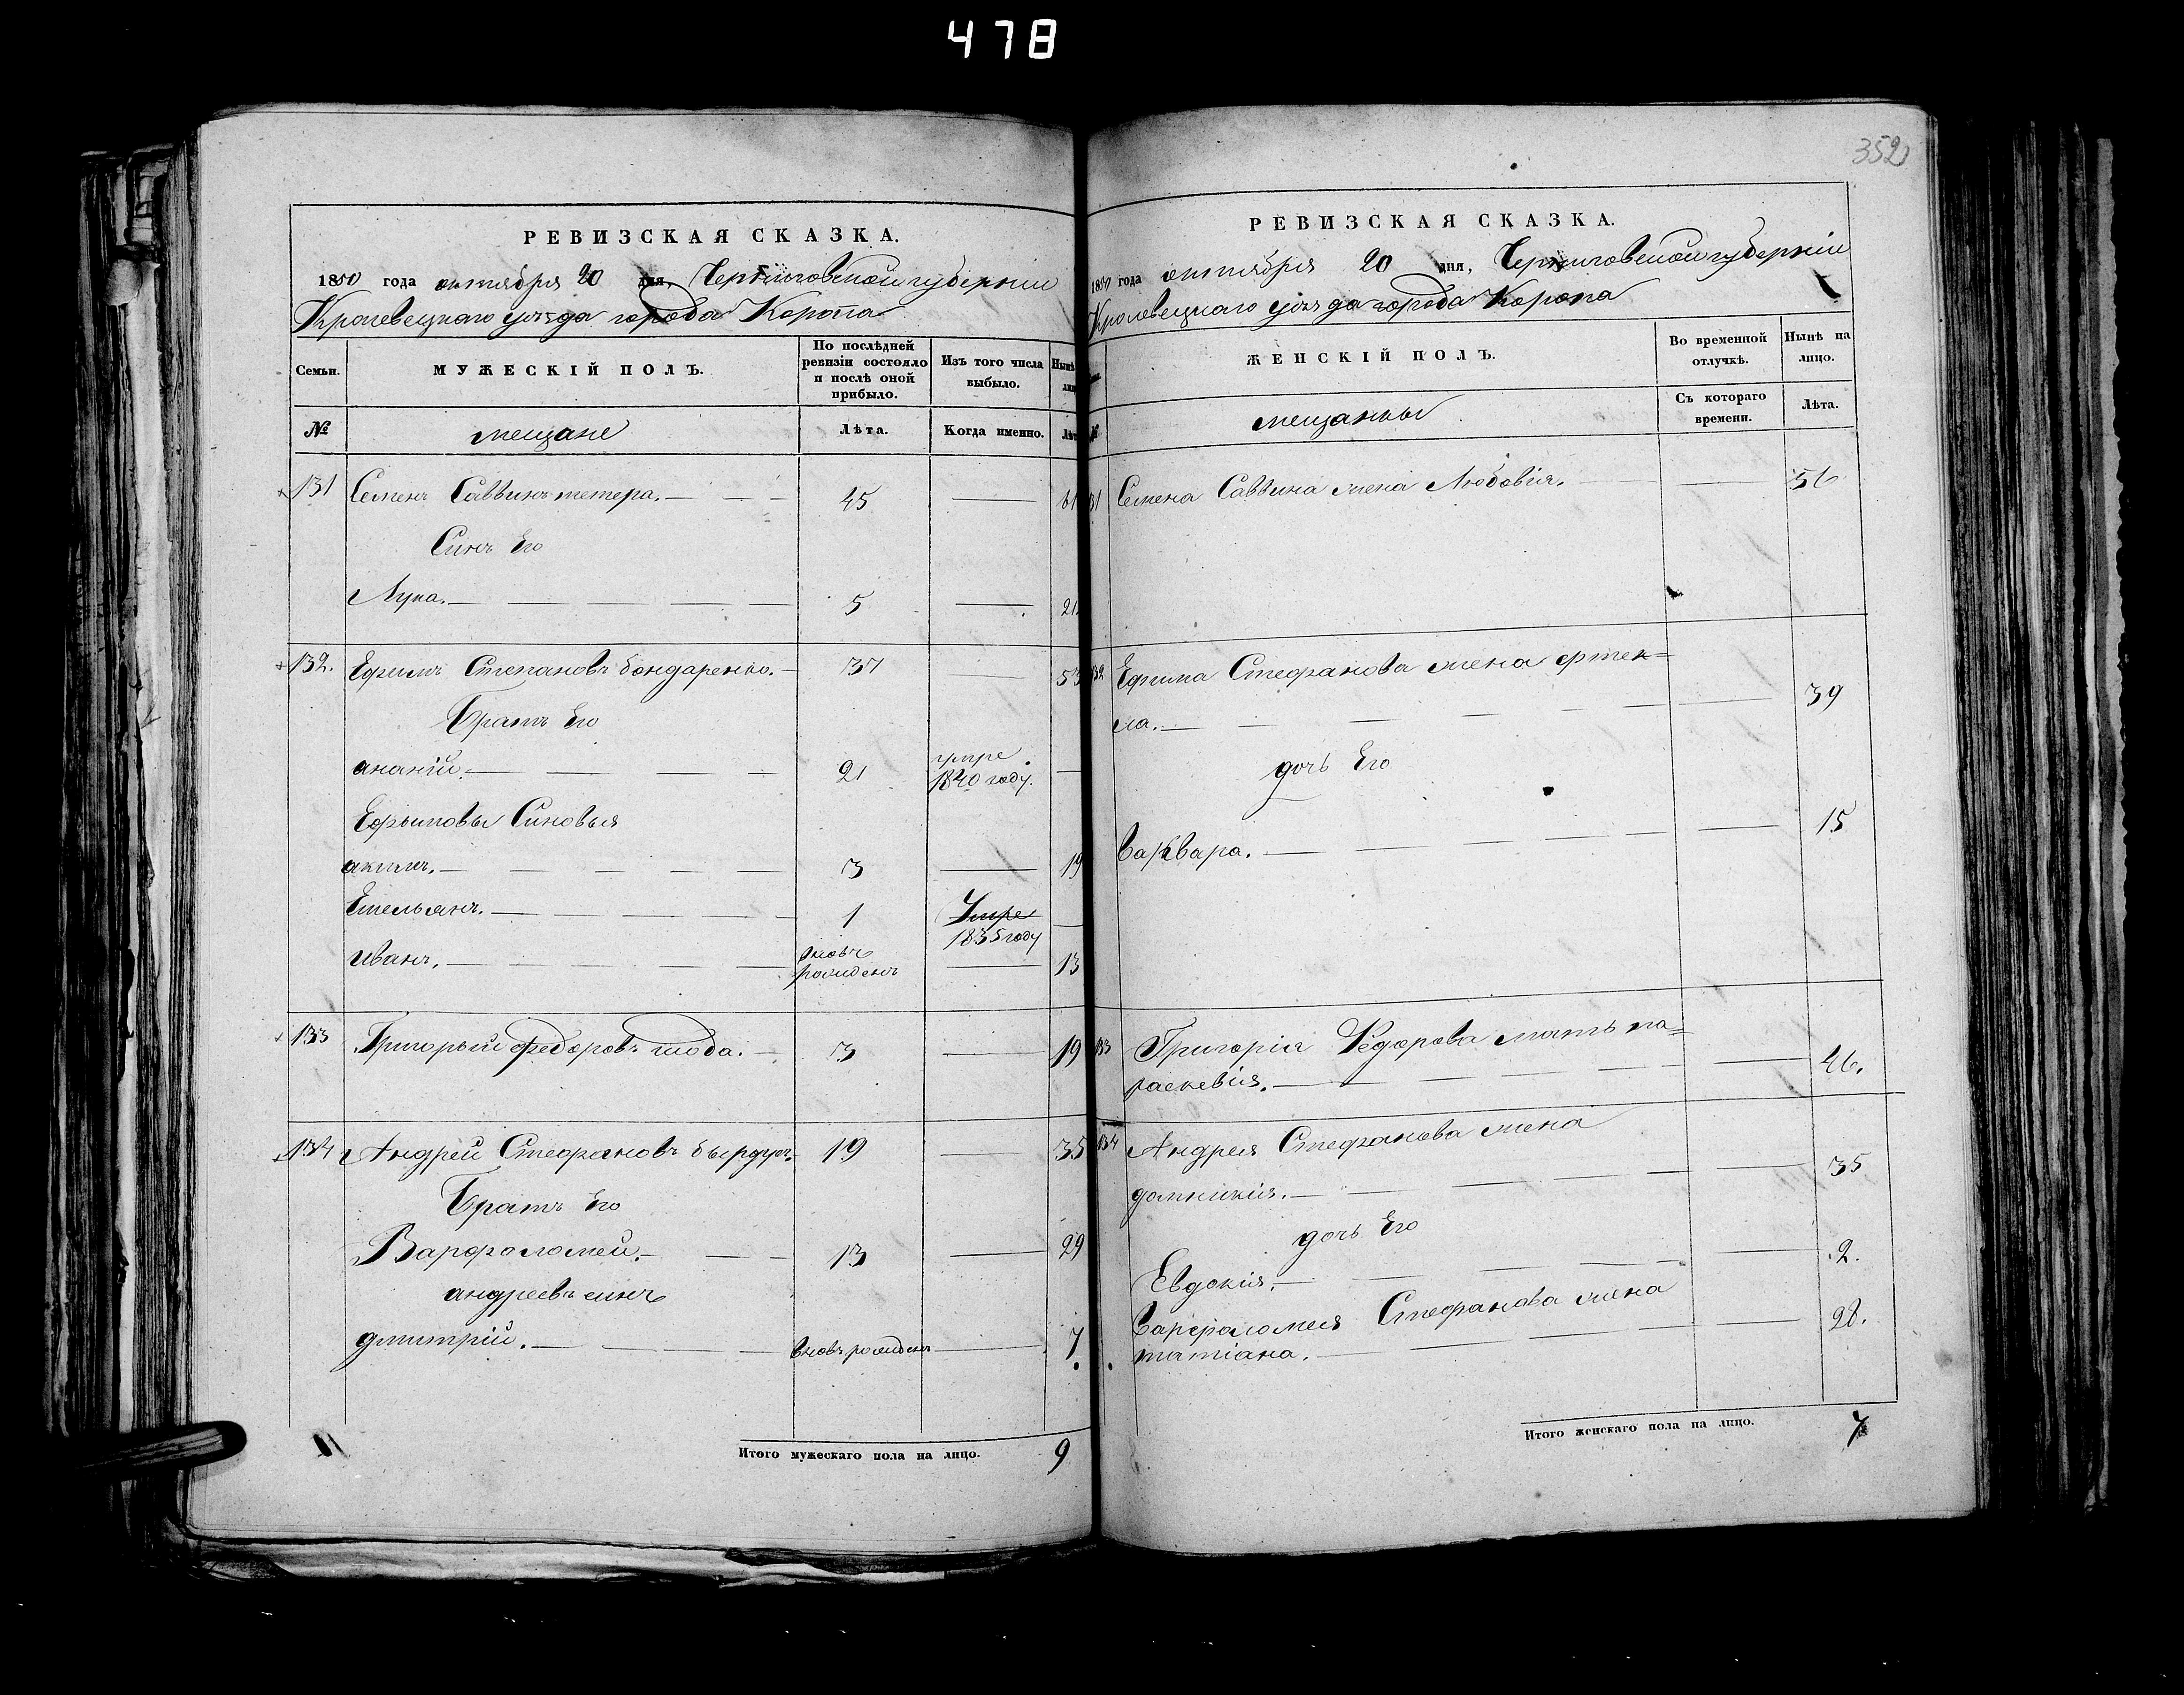 478
РЕВИЗСКАЯ СКАЗКА.
1850 года октября 20 дня, Черниговской губернiи
Кролевецкаго уѣзда города Коропа
Семьи.
МУЖЕСКIЙ ПОЛЪ.
По послѣдней ревизiи состояло и послѣ оной прибыло.
Изъ того числа выбыло.
Нынѣ
№
мещане
Лѣта.
Когда именно.
131 Семенъ Саввинъ тетера. 45 61
Синъ Его
Лука. 5 21
132. Ефимъ Степановъ бондаренко. 37 53
Братъ Его
ананiй. 21 умре 1840 году.
Ефимовы Синовья
акимъ. 3 19
Емельянъ. 1 Умре 1835 году
иванъ. вновъ рожденъ 13
133 Григорый федоровъ шода. 3 19
134 Андрей Стефановъ 19 35
Братъ Его
Варфоломей. 13 29
андреевъ синъ
дмитрiй. вновъ рожденъ 7
Итого мужескаго пола на лицо. 9
352
РЕВИЗСКАЯ СКАЗКА.
1850 года октября 20 дня, Черниговской губернiи
Кролевецкаго уѣзда города Коропа
ЖЕНСКIЙ ПОЛЪ.
Во временной отлучкѣ.
Нынѣ на лицо.
№
мещанки
Съ котораго времени.
Лѣта.
131 Семена Саввина жена Любовiя. 56
132 Ефима Стефанова жена фтек=
ла. 39
дочь Его
Варвара. 15
133 Григорiя Федорова мать па=
раскевiя. 46.
134 Андрея Стефанова жена
домникiя. 35
дочь Его
Евдокiя. 2.
Варфоломея Стефанова жена
татiана. 28.
Итого женскаго пола на лицо. 7